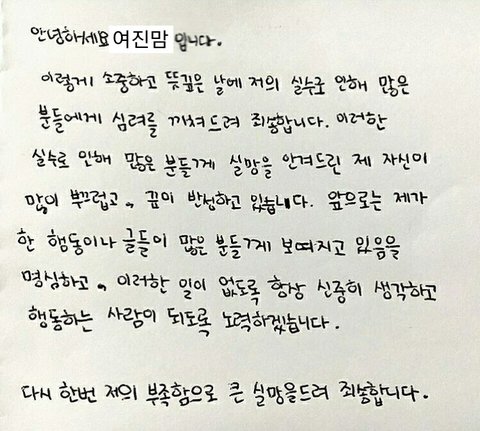 안녕하세요 여진맘 입니다.
이렇게 소중하고 뜻깊은 날에 저의 실수로 인해 많은
분들에게 심려를 끼쳐드려 죄송합니다. 이러한
실수로 인해 많은 분들께 실망을 안겨드린 제 자신이
많이 부끄럽고, 깊이 반성하고 있습니다. 앞으로는 제가
한 행동이나 글들이 많은 분들께 보여지고 있음을
명심하고, 이러한 일이 없도록 항상 신중히 생각하고
행동하는 사람이 되도록 노력하겠습니다.
다시 한번 저의 부족함으로 큰 실망을드려 죄송합니다.